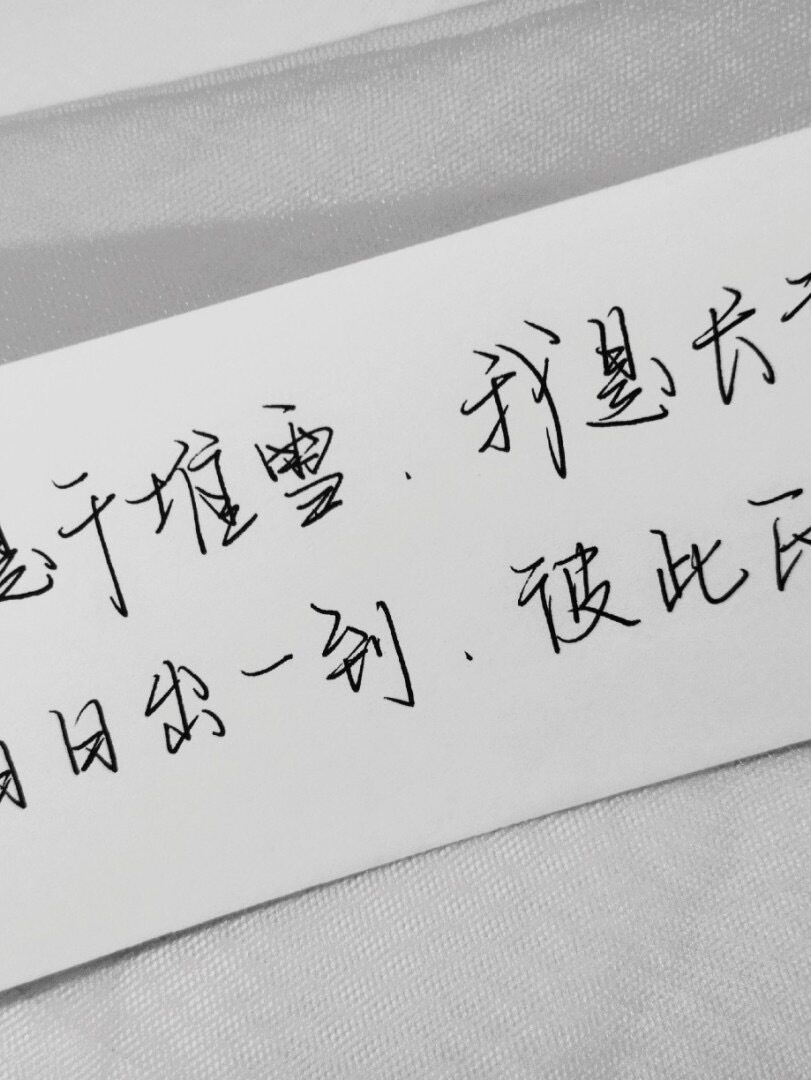 是千堆雪.我是长
日出一到.彼此